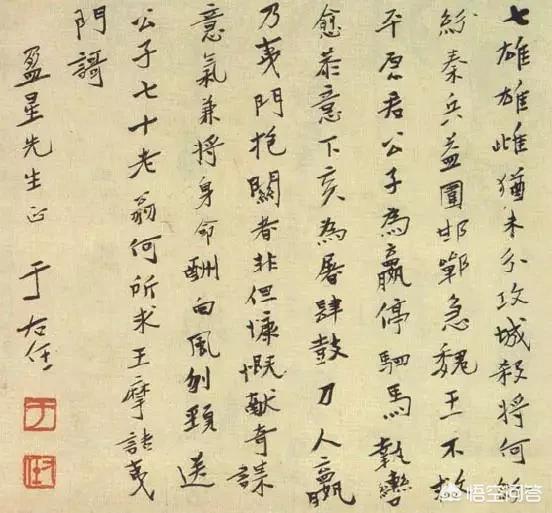 七雄雄雌猶未分攻城殺將何紛
紛秦兵益圍邯鄲急魏王不救
平原君公子為嬴停駟馬執轡
愈恭意下亥為屠肆鼓刀人嬴
乃夷門抱關者非但慷慨獻奇謀
意氣兼將身命酬向風刎頸送
公子七十老翁何所求王摩詰夷
門謌
盈星先生正 于右任
于
右任
悟空问答